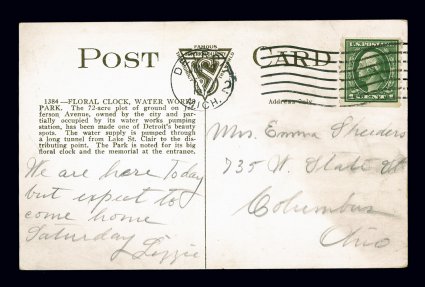 POST CARD
FAMOUS
VS
DETROIT
MICH.
U.S. POSTAGE
1384—FLORAL CLOCK, WATER WORKS
PARK. The 72-acre plot of ground on Jef-
ferson Avenue, owned by the city and par-
tially occupied by its water works pumping
station, has been made one of Detroit's beauty
spots. The water supply is pumped through
a long tunnel from Lake St. Clair to the dis-
tributing point. The Park is noted for its big
floral clock and the memorial at the entrance.
Address Only.
We are here today
but expect to
come home
Saturday
Lizzie
Mrs. Emma
735 W. State St
Columbus
Ohio